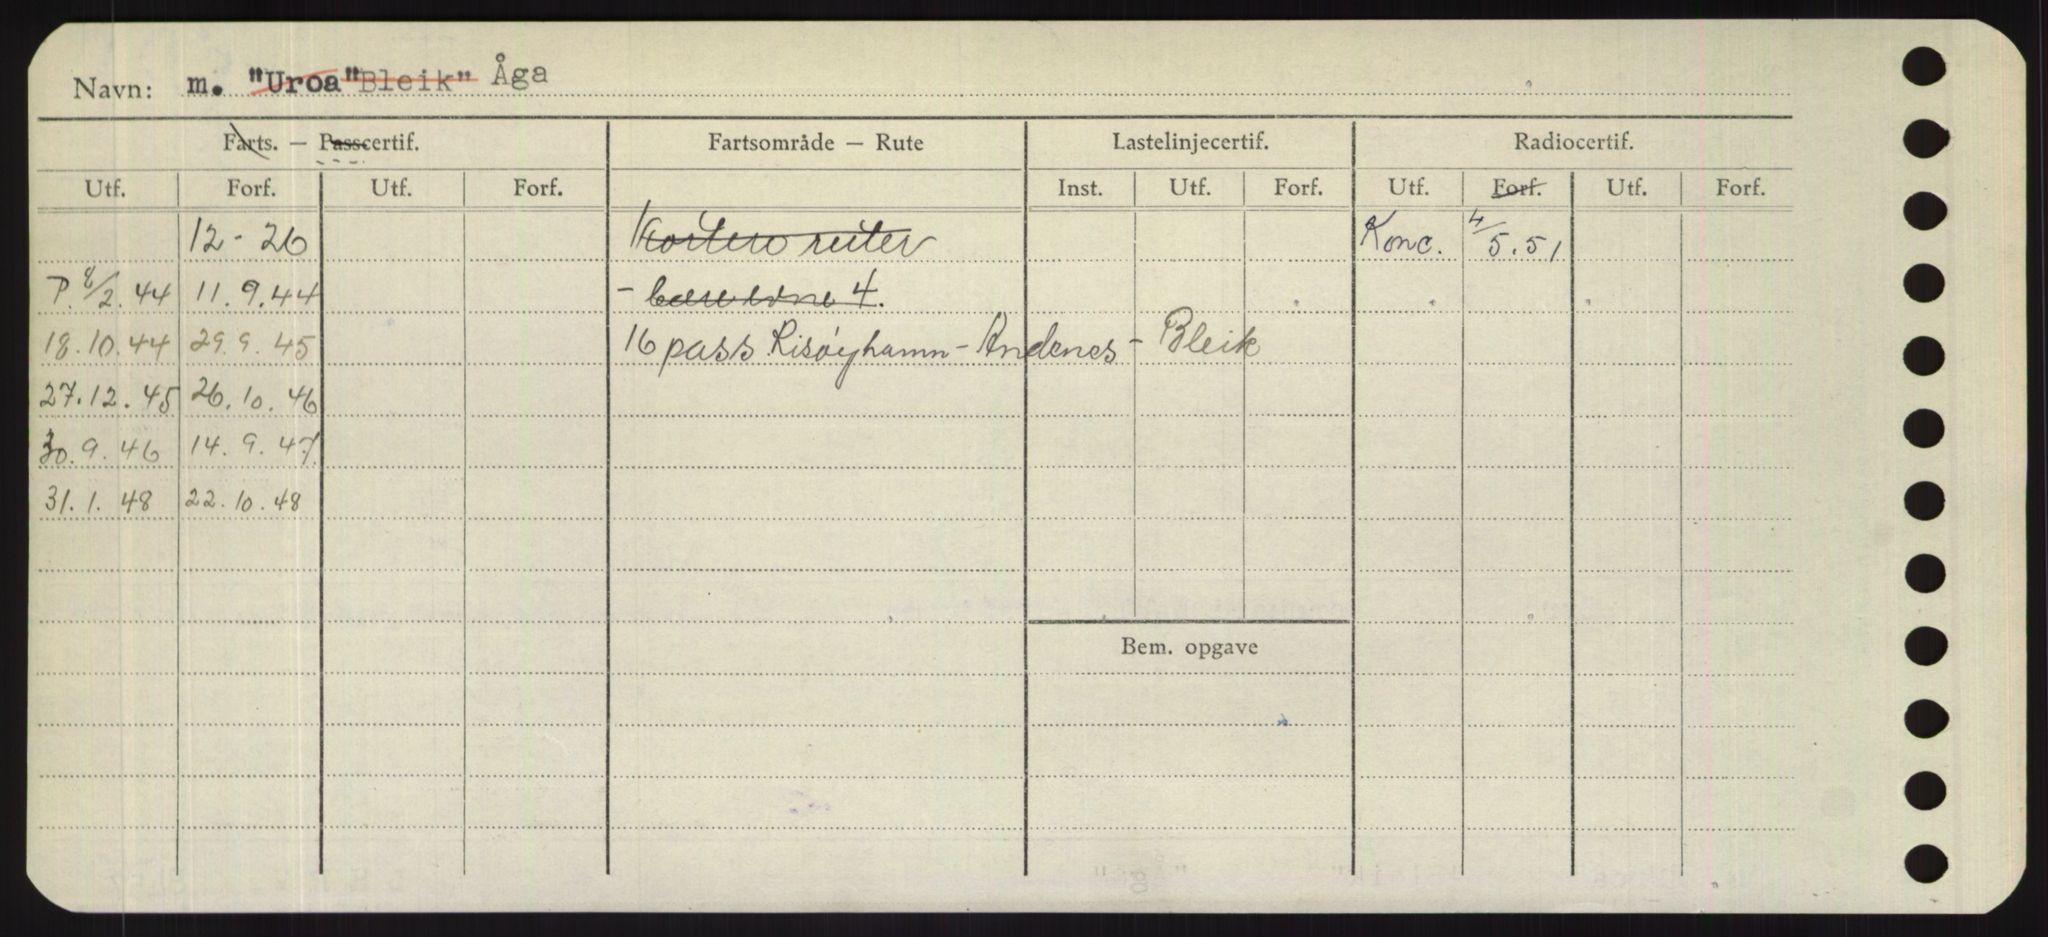 Navn: m. "Uroa" Bleik" Åga
Farts. — Passcertif. Fartsområde — Rute Lastelinjecertif. Radiocertif.
Utf. Forf. Utf. Forf. Inst. Utf. Forf. Utf. Forf. Utf. Forf.
12 - 26 ruter Konc. 4/5.51
P. 8/2.44 11.9.44 - 4.
18.10.44 29.9.45 16 pass Risøyhamn - Andenes - Bleik
27.12.45 26.10.46
30.9.46 14.9.47
31.1.48 22.10.48
Bem. opgave